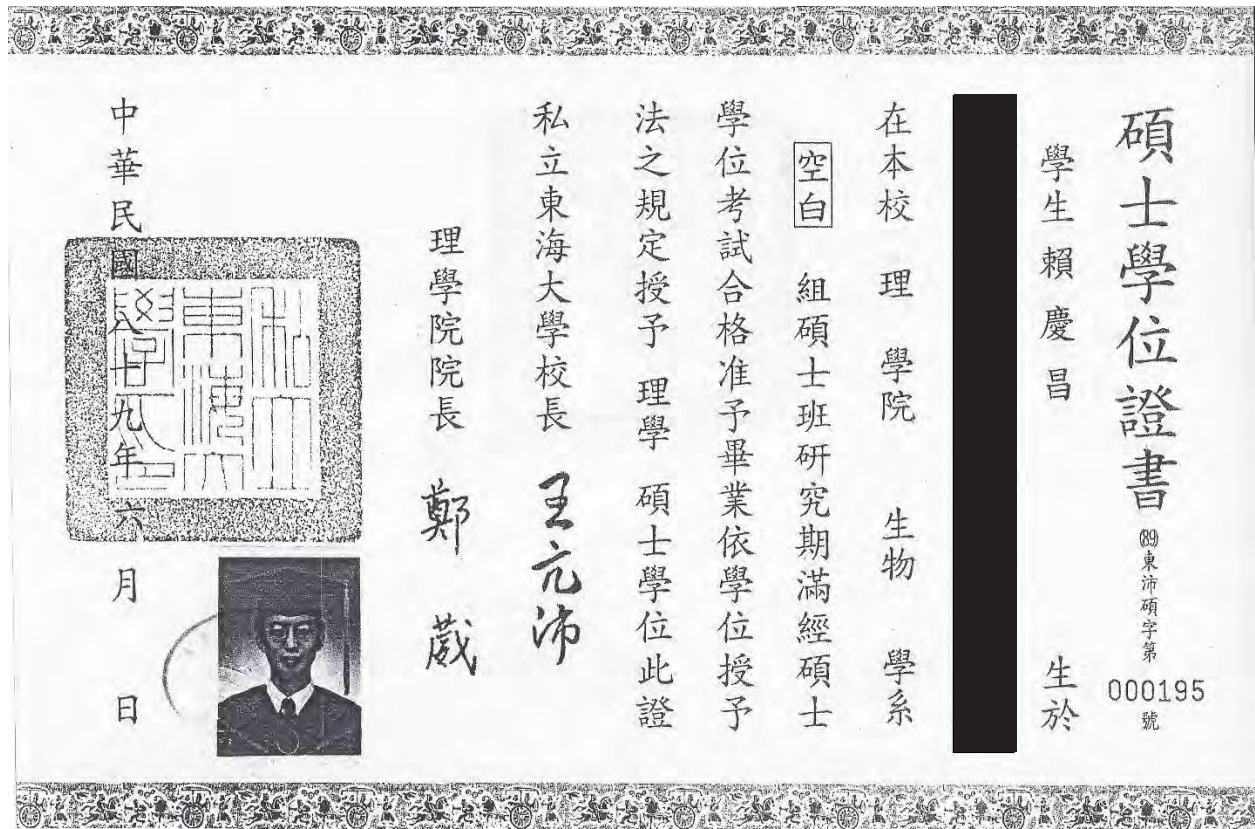 碩士學位證書
(89)東沛碩字第000195號
學生賴慶昌 生於
在本校 理 學院 生物 學系
空白 組碩士班研究期滿經碩士
學位考試合格准予畢業依學位授予
法之規定授予 理學 碩士學位此證
私立東海大學校長 王亢沛
理學院院長 鄭 葳
中華民國八十九年六月 日
私立東海大學印